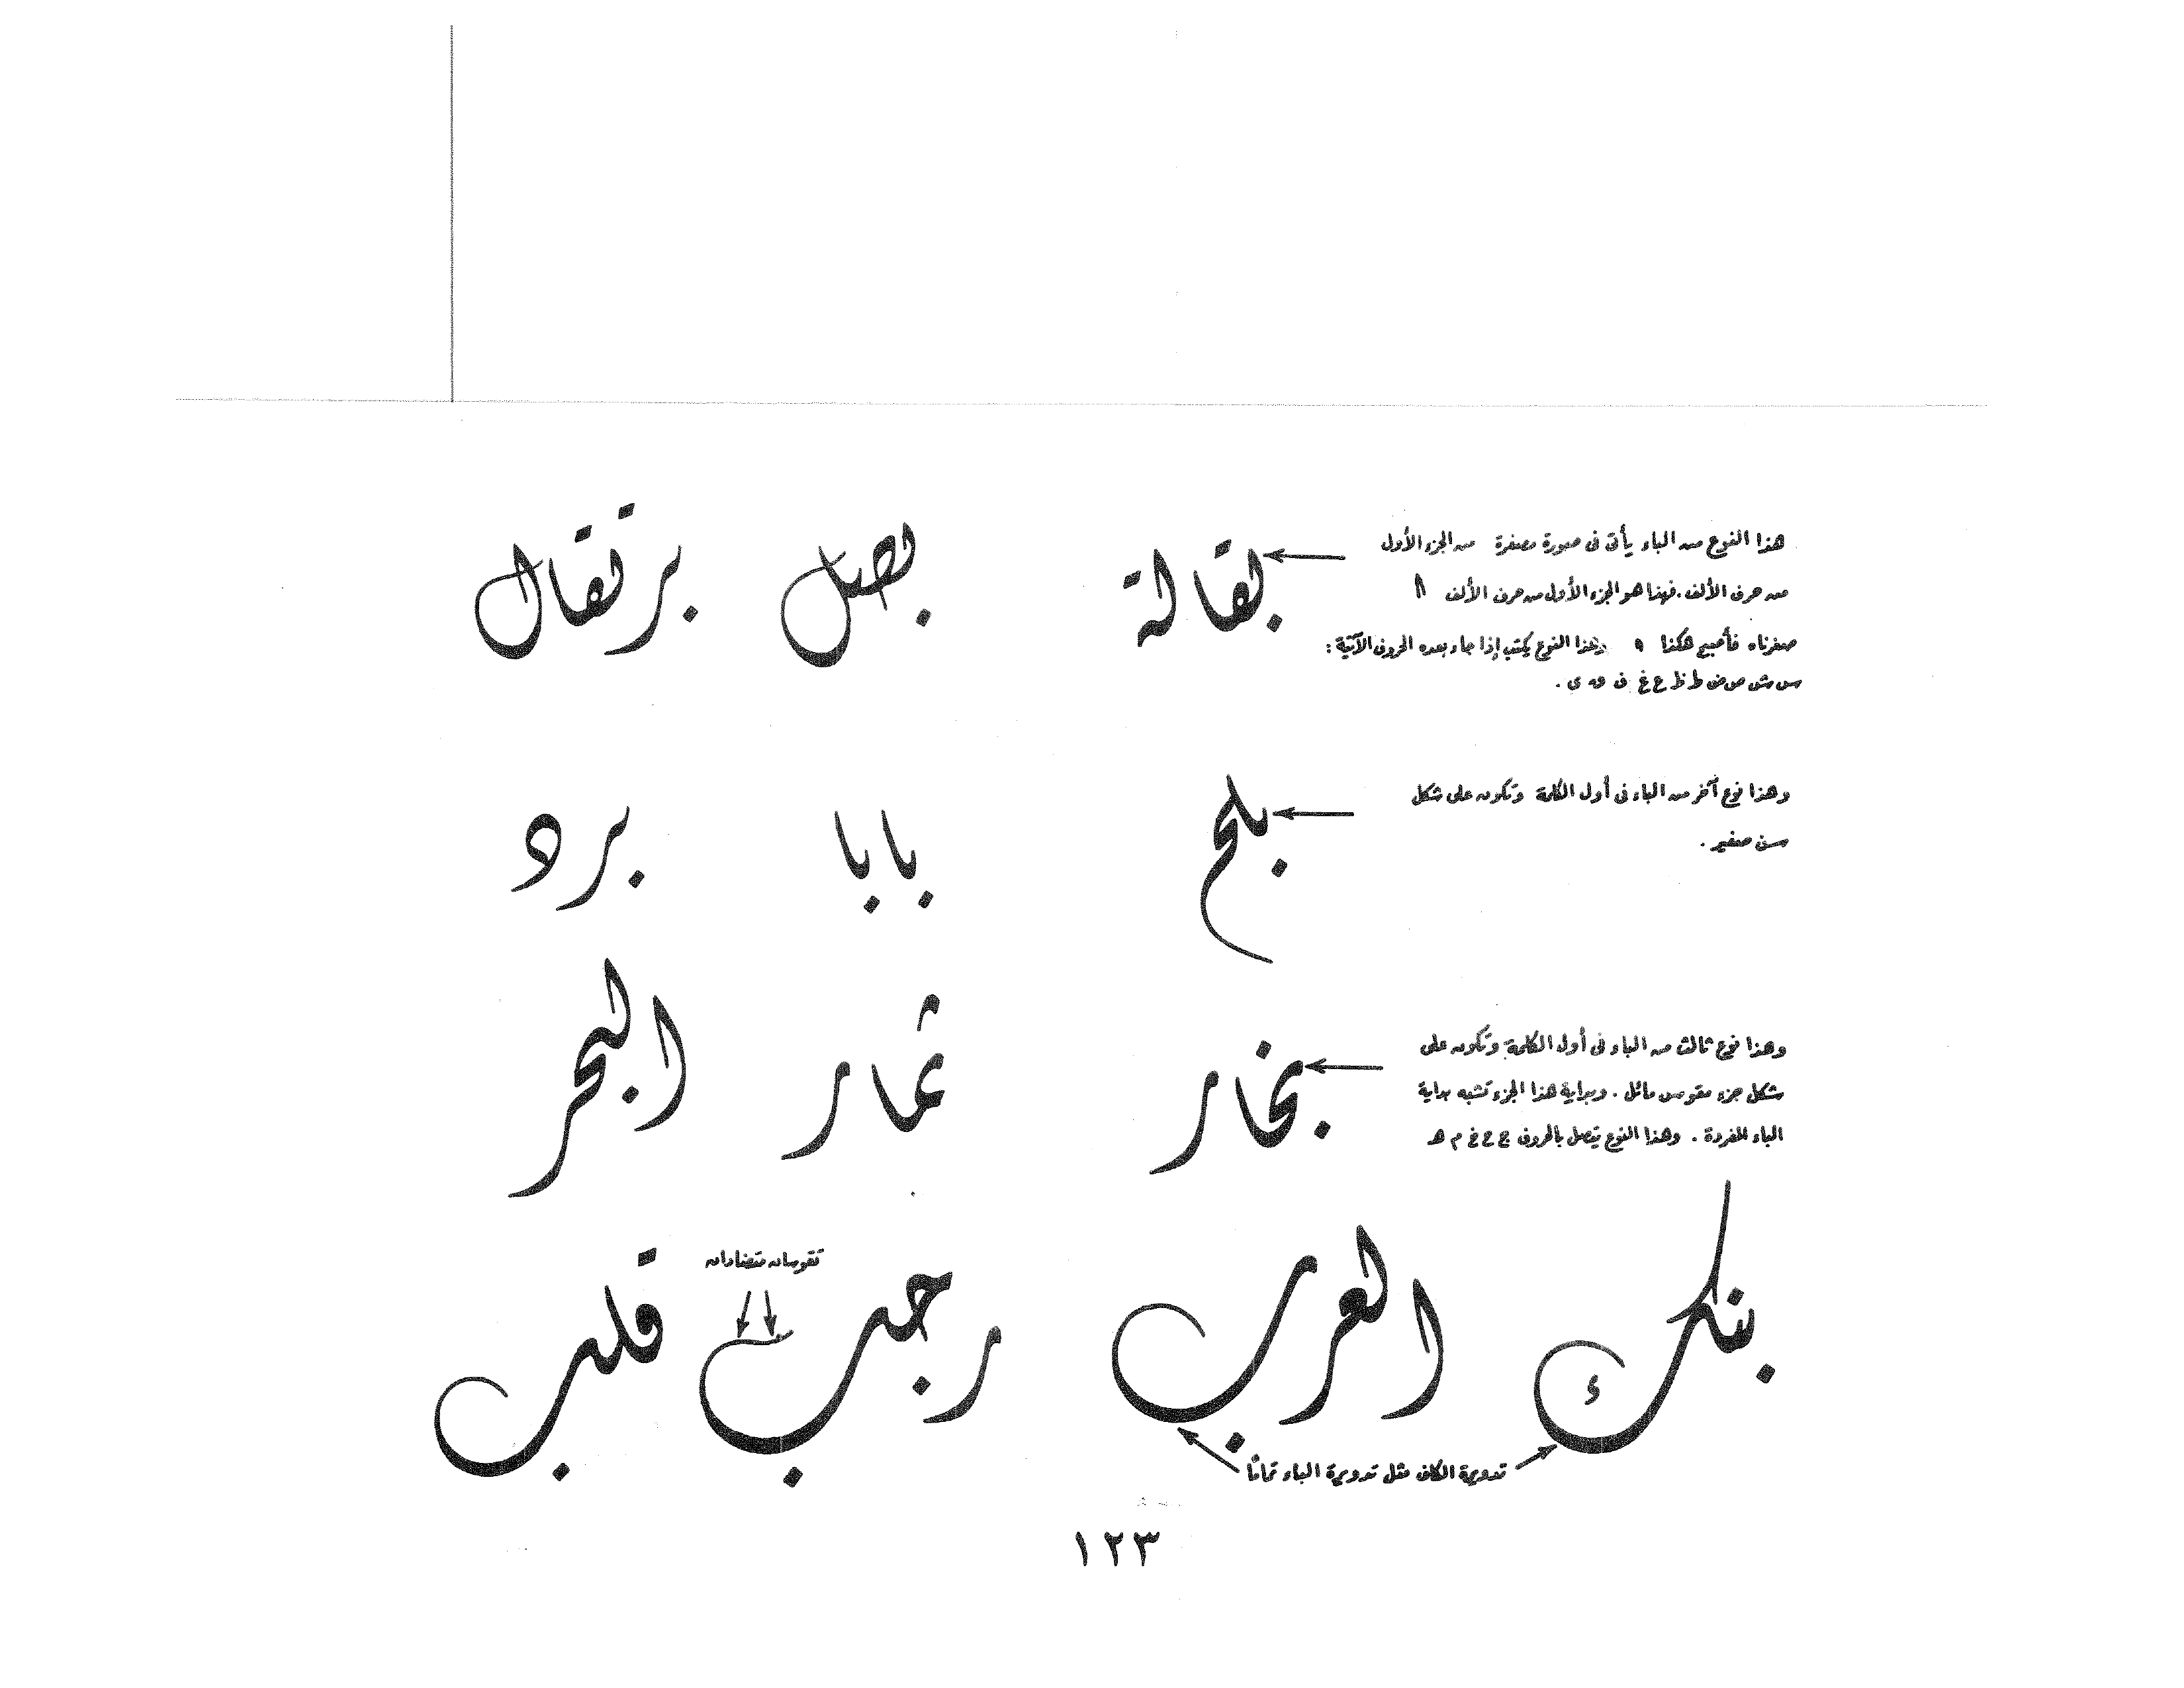 هذا النوع من الباء يأتى فى صورة مصغرة من الجزء الأول
من حرف الألف . فهذا هو الجزء الأول من حرف الألف
صغرناه فأصبح هكذا وهذا النوع يكتب إذا جاء بعده الحروف الآتية :
س ش ص ض ط ظ ع غ ف ق ى .
بقالة بصل برتقال
وهذا نوع آخر من الباء فى أول الكلمة وتكون على شكل
سن صغير .
بلح بابا برد
وهذا نوع ثالث من الباء فى أول الكلمة وتكون على
شكل جزء مقوس مائل . وبداية هذا الجزء تشبه بداية
الباء المفردة . وهذا النوع يتصل بالحروف ج ح خ م هـ
بخار ثمار البحر
تقوسان متضادان
بنك العرب رجب قلب
تدويرة الكاف مثل تدويرة الباء تمامًا
١٢٣